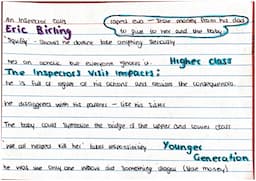 An Inspector Calls
Eric Birling
stole money from his dad
to give to her and the baby
'Squiffy' - Should he doesnt take anything seriously
He's an alcoholic but everyone ignores it. Higher Class
The Inspectors Visit Impacts:
he is full of regret of his actions and realises the consequences
he disagrees with his parents - like his sister
The baby could symbolise the bridge of the upper and lower class
'we all helped kill her' takes responsibility Younger
Generation
he was the only one who did something illegal (stole money)